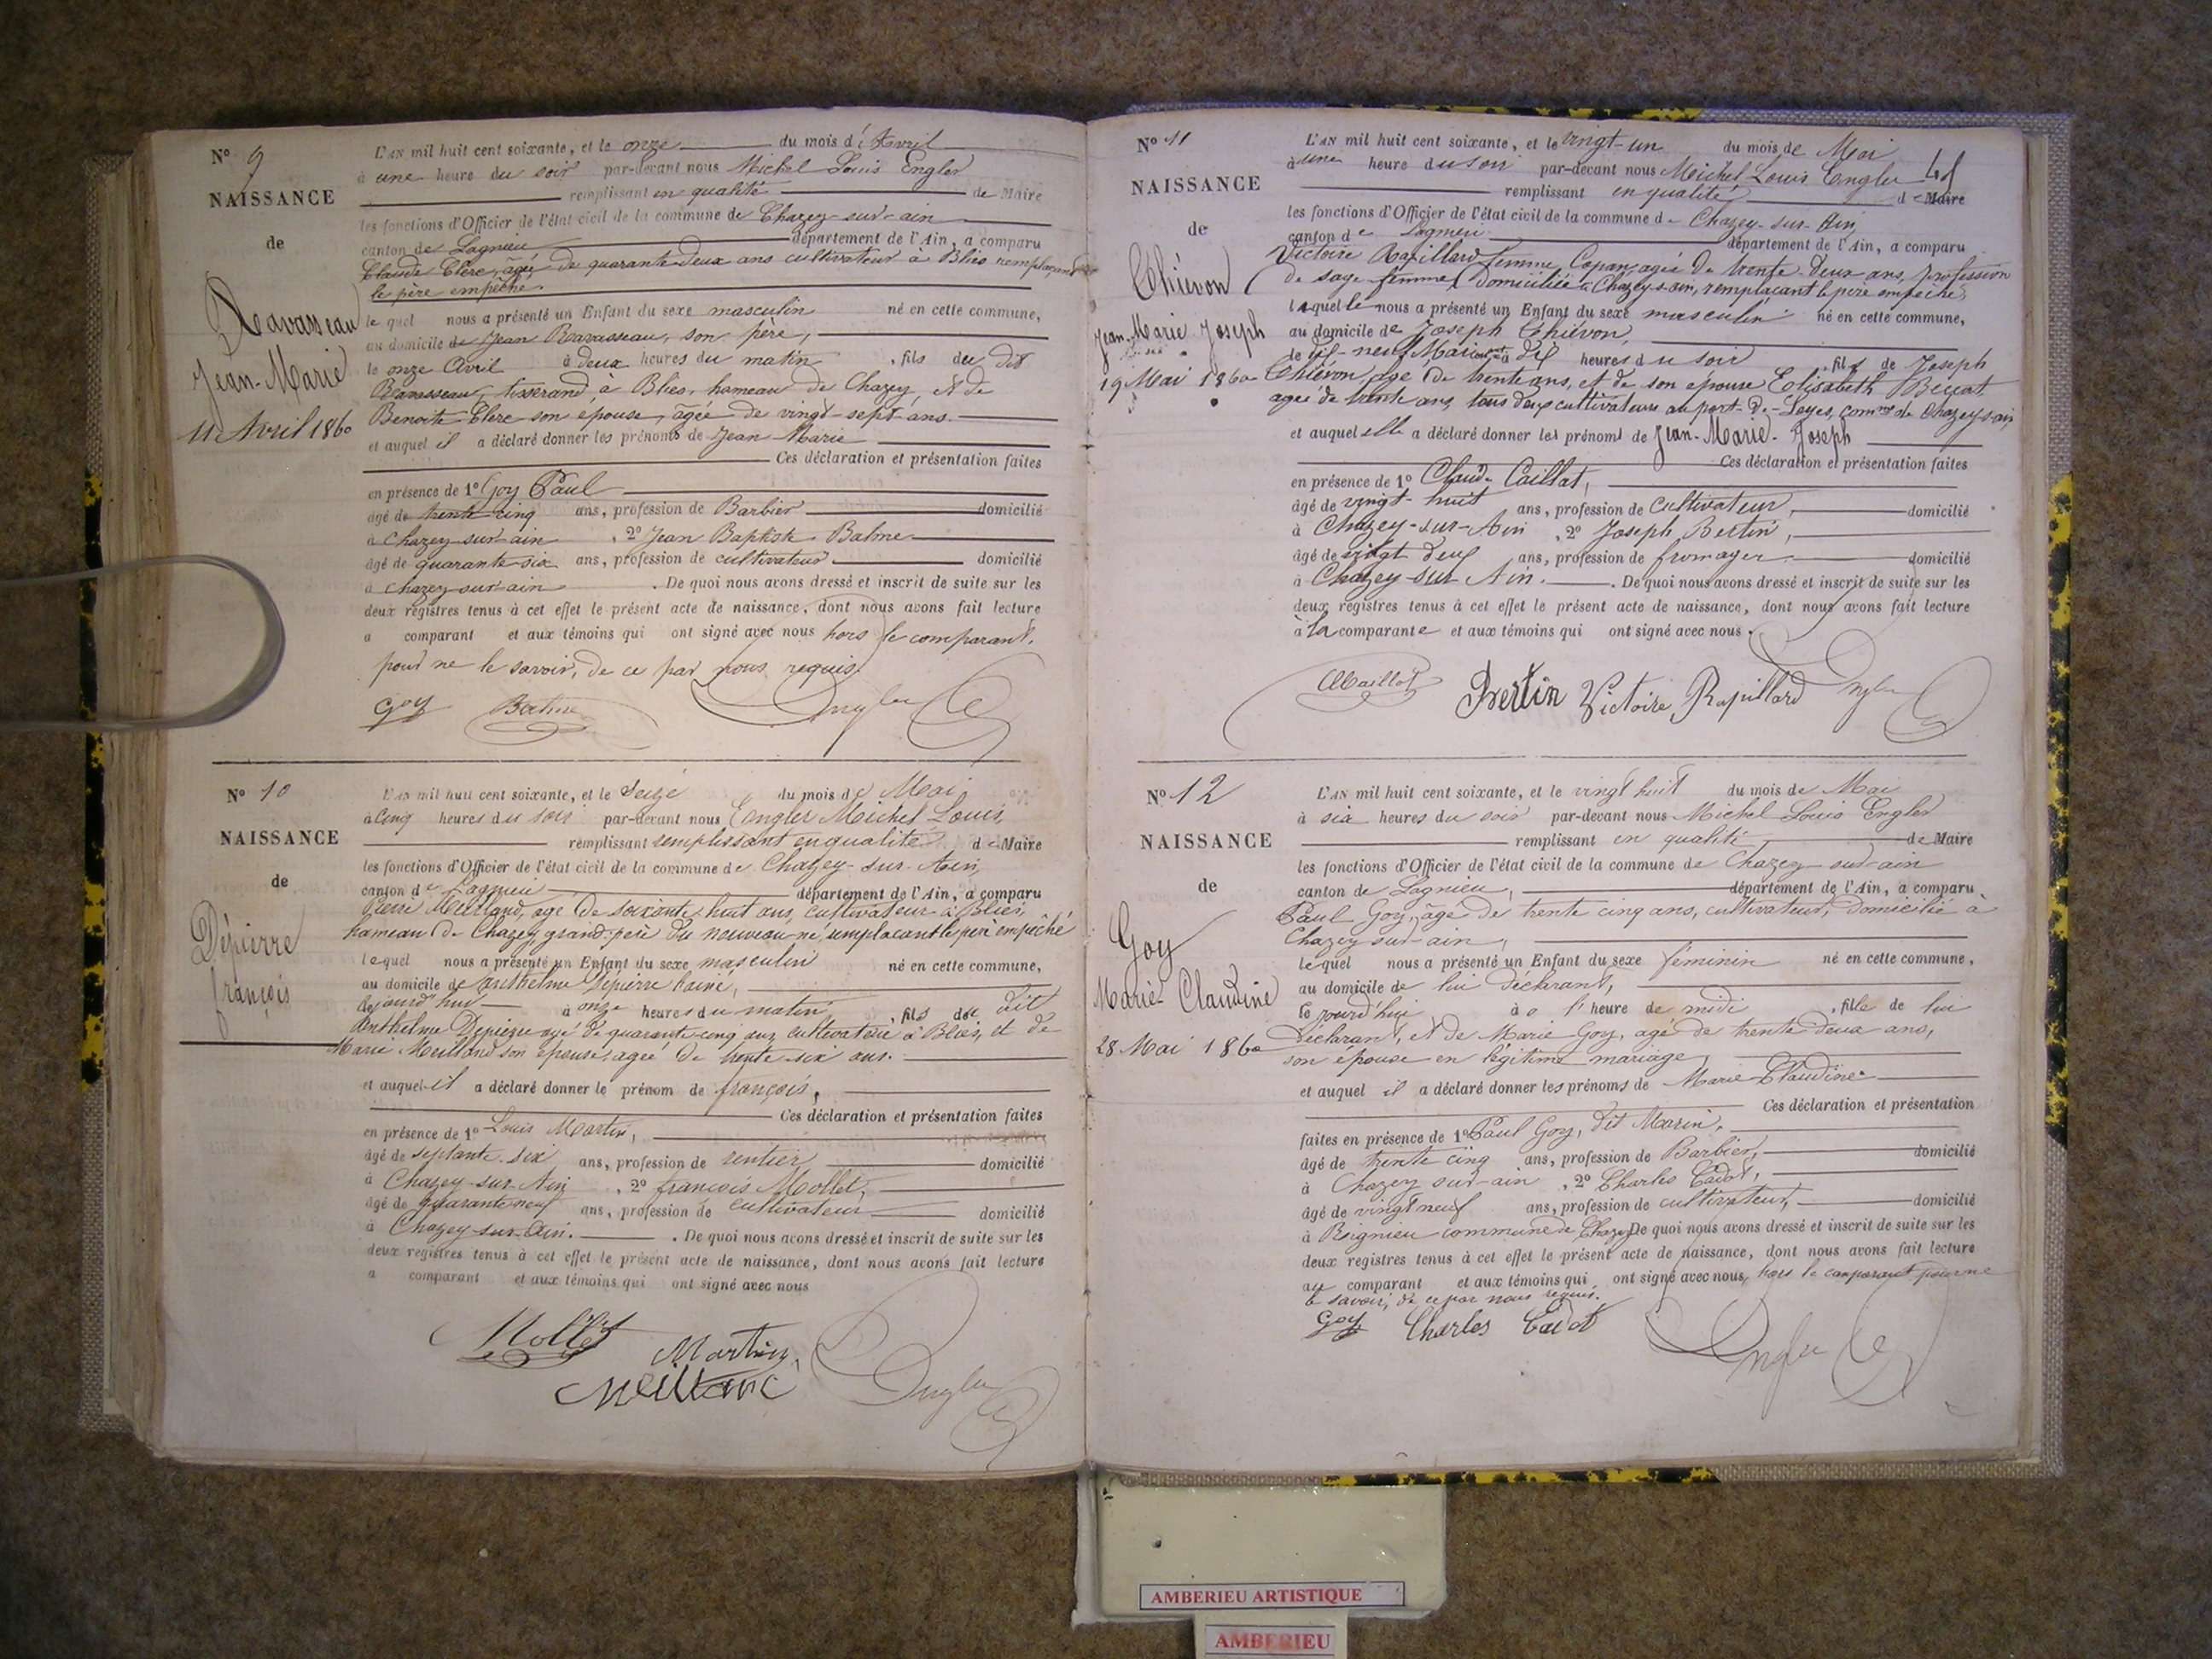 Nº 9
NAISSANCE
de
Ravasseau
Jean-Marie
11 Avril 1860
L'AN mil huit cent soixante, et le onze du mois d'Avril
à une heure du soir par-devant nous Michel Louis Engler
remplissant en qualité de Maire
les fonctions d'Officier de l'état civil de la commune de Chazey-sur-ain
canton de Lagnieu département de l'Ain, a comparu
Claude Clère, âgé de quarante-deux ans cultivateur à Blies remplaçant
le père empêché.
le quel nous a présenté un Enfant du sexe masculin né en cette commune,
au domicile de Jean Ravasseau, son père,
le onze Avril à deux heures du matin, fils du dit
Ravasseau, tisserand, à Blies, hameau de Chazey, et de
Benoite Clère son épouse, agée de vingt-sept ans.
et auquel il a déclaré donner les prénoms de Jean Marie
Ces déclaration et présentation faites
en présence de 1º Goy Paul
âgé de trente cinq ans, profession de Barbier domicilié
à Chazey-sur-ain, 2º Jean Baptiste Balme
âgé de quarante-six ans, profession de cultivateur domicilié
à Chazey-sur-ain. De quoi nous avons dressé et inscrit de suite sur les
deux registres tenus à cet effet le présent acte de naissance, dont nous avons fait lecture
a comparant et aux témoins qui ont signé avec nous hors le comparant,
pour ne le savoir, de ce par nous requis.
Goy Balme Engler
Nº 10
NAISSANCE
de
Dépierre
françois
L'AN mil huit cent soixante, et le Seize du mois de Mai
à cinq heures du soir par-devant nous Engler Michel Louis,
remplissant remplissant en qualité de Maire
les fonctions d'Officier de l'état civil de la commune de Chazey-sur-Ain,
canton de Lagnieu département de l'Ain, a comparu
Pierre Meilland, agé de soixante huit ans, cultivateur à Blies,
hameau de Chazey, grand-père du nouveau-né, remplaçant le père empêché
lequel nous a présenté un Enfant du sexe masculin né en cette commune,
au domicile de Anthelme Dépierre l'ainé,
aujourd'hui à onze heures du matin, fils du dit
Anthelme Depierre agé de quarante-cinq ans, cultivateur à Blies, et de
Marie Meilland son épouse, agée de trente-six ans.
et auquel il a déclaré donner le prénom de françois,
Ces déclaration et présentation faites
en présence de 1º Louis Martin,
âgé de septante-six ans, profession de rentier domicilié
à Chazey-sur-Ain, 2º françois Mollet,
âgé de quarante neuf ans, profession de cultivateur domicilié
à Chazey-sur-Ain. De quoi nous avons dressé et inscrit de suite sur les
deux registres tenus à cet effet le présent acte de naissance, dont nous avons fait lecture
a comparant et aux témoins qui ont signé avec nous
Mollet Martin,
Meilland Engler
Nº 11
NAISSANCE
de
Thiévon
Jean-Marie Joseph
19 Mai 1860
L'AN mil huit cent soixante, et le vingt-un du mois de Mai
à une heure du soir par-devant nous Michel Louis Engler
remplissant en qualité de Maire
les fonctions d'Officier de l'état civil de la commune de Chazey-sur-Ain,
canton de Lagnieu département de l'Ain, a comparu
Victoire Rapillard femme Copan, agée de trente-deux ans, profession
de sage femme, domiciliée à Chazey-s-ain, remplaçant le père empêché,
laquelle nous a présenté un Enfant du sexe masculin né en cette commune,
au domicile de Joseph Thiévon,
le dix-neuf Mai courant à dix heures du soir, fils de Joseph
Thiévon, age de trente ans, et de son épouse Elisabeth Beccat
agée de trente ans, tous deux cultivateurs au port-de-Loyes, comne de Chazey-s-ain,
et auquel elle a déclaré donner les prénoms de Jean-Marie-Joseph
Ces déclaration et présentation faites
en présence de 1º Claude Caillat,
âgé de vingt-huit ans, profession de cultivateur, domicilié
à Chazey-sur-Ain, 2º Joseph Bertin,
âgé de vingt deux ans, profession de fromager domicilié
à Chazey-sur Ain. De quoi nous avons dressé et inscrit de suite sur les
deux registres tenus à cet effet le présent acte de naissance, dont nous avons fait lecture
à la comparante et aux témoins qui ont signé avec nous.
Bertin Victoire Rapillard Engler
Nº 12
NAISSANCE
de
Goy
Marie-Claudine
28 Mai 1860
L'AN mil huit cent soixante, et le vingt huit du mois de Mai
à six heures du soir par-devant nous Michel Louis Engler
remplissant en qualité de Maire
les fonctions d'Officier de l'état civil de la commune de Chazey sur-ain
canton de Lagnieu, département de l'Ain, a comparu
Paul Goy, âgé de trente cinq ans, cultivateur, domicilié à
Chazey sur-ain,
lequel nous a présenté un Enfant du sexe féminin né en cette commune,
au domicile de lui déclarant,
ce jourd'hui à l'heure de midi, fille de lui
déclarant, et de Marie Goy, agé de trente deux ans,
son épouse en légitime mariage,
et auquel il a déclaré donner les prénoms de Marie Claudine
Ces déclaration et présentation
faites en présence de 1º Paul Goy, dit Marin,
âgé de trente cinq ans, profession de Barbier, domicilié
à Chazey sur-ain, 2º Charles Cadot,
âgé de vingt neuf ans, profession de cultivateur, domicilié
à Rignieu commune de Chazey De quoi nous avons dressé et inscrit de suite sur les
deux registres tenus à cet effet le présent acte de naissance, dont nous avons fait lecture
au comparant et aux témoins qui ont signé avec nous, hors le comparant pour ne
le savoir, de ce par nous requis.
Goy Charles Cadot Engler
AMBERIEU ARTISTIQUE
AMBERIEU